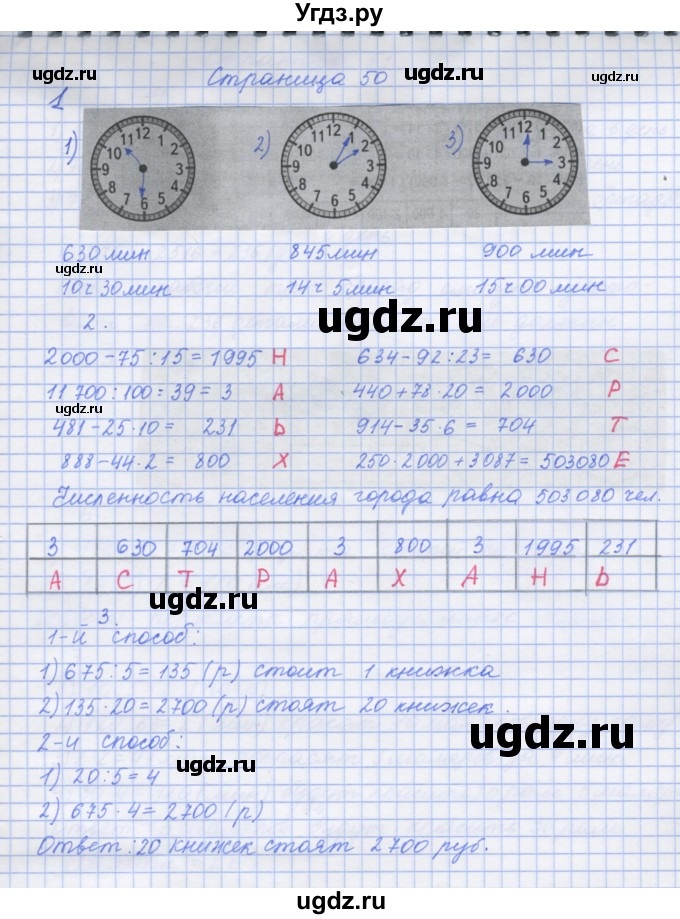 Угдз.ру
ugdz.ru Страница 50 ugdz.ru ugdz.ru
1
1) 2) 3)
12 1 2 3 4 5 6 7 8 9 10 11
12 1 2 3 4 5 6 7 8 9 10 11
12 1 2 3 4 5 6 7 8 9 10 11
630 мин 845 мин 900 мин
ugdz.ru
10 ч 30 мин 14 ч 5 мин 15 ч 00 мин
ugdz.ru
2.
2000 - 75 : 15 = 1995 Н 634 - 92 : 23 = 630 С
11 700 : 100 : 39 = 3 А 440 + 78 · 20 = 2000 Р
ugdz.ru
481 - 25 · 10 = 231 Ь 914 - 35 · 6 = 704 Т
888 - 44 · 2 = 800 Х 250 · 2000 + 3087 = 503080 Е
Численность населения города равна 503 080 чел.
3 630 704 2000 3 800 3 1995 231
А С Т Р А Х А Н Ь
ugdz.ru
3.
1-й способ:
1) 675 : 5 = 135 (р) стоит 1 книжка
2) 135 · 20 = 2700 (р) стоят 20 книжек.
ugdz.ru
2-й способ:
1) 20 : 5 = 4
ugdz.ru
2) 675 · 4 = 2700 (р)
Ответ: 20 книжек стоят 2700 руб.
ugdz.ru